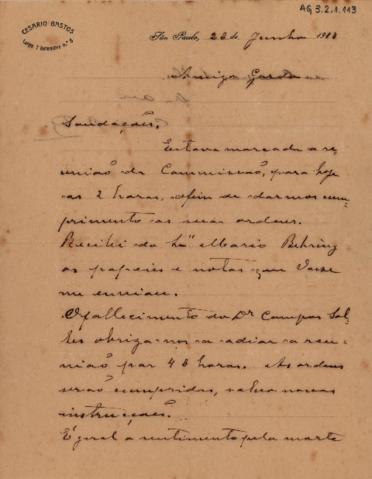 AG 3.2.1.113
CESARIO BASTOS
Largo 7 Setembro n.º 8
São Paulo, 28 de Junho 1913
Amigo
Saudações,
Estava marcada a re-
união da Commissão, para hoje
as 2 horas, afim de darmos cum-
primento as suas ordens.
Recebi do Mario Behring
os papeis e notas que
me enviou.
O fallecimento do Dr Campos Sal-
les obriga-nos a adiar a reu-
nião por 48 horas. As ordens
serão cumpridas, salvo novas
instrucções.
É geral o sentimento pela morte